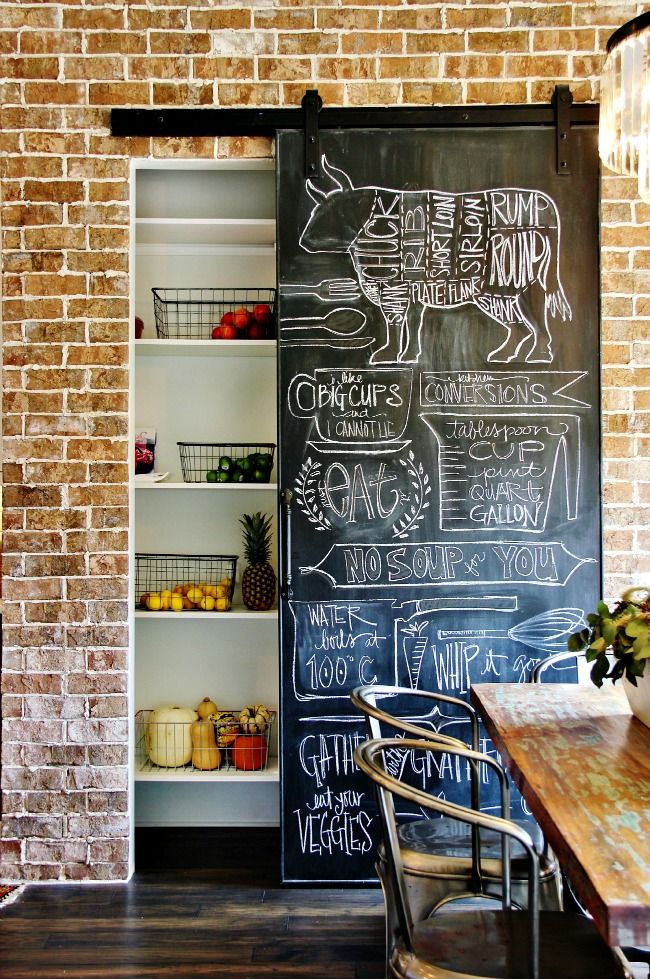 CHUCK
RIB
SHORT LOIN
SIRLOIN
RUMP
ROUND
SHANK
PLATE
FLANK
SHANK
i like
BIG CUPS
and
I CANNOT LIE
kitchen
CONVERSIONS
tablespoon
CUP
pint
QUART
GALLON
eat
NO SOUP for YOU
WATER
boils at
100°C
WHIP it good
GATHER
with
GRATEFUL
eat your
VEGGIES